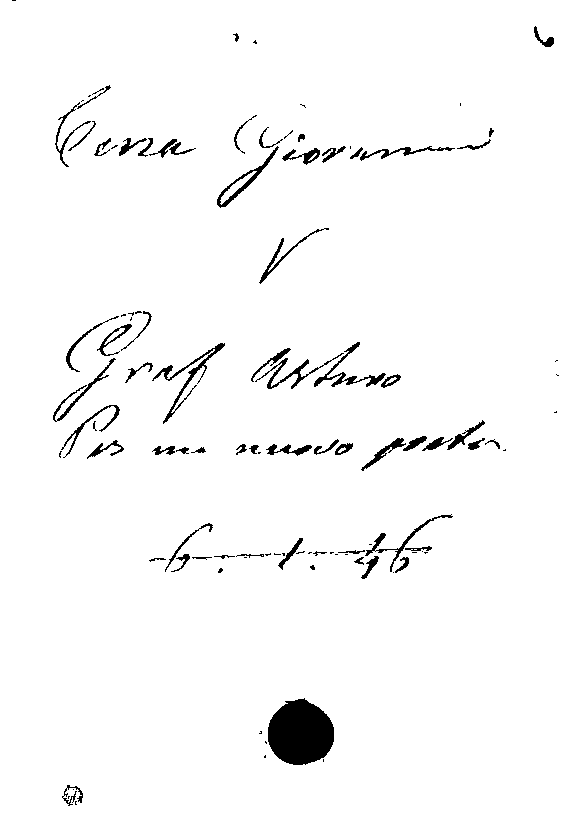 Cena Giovanni
V
Graf Arturo
Per un nuovo poeta
6.1.46